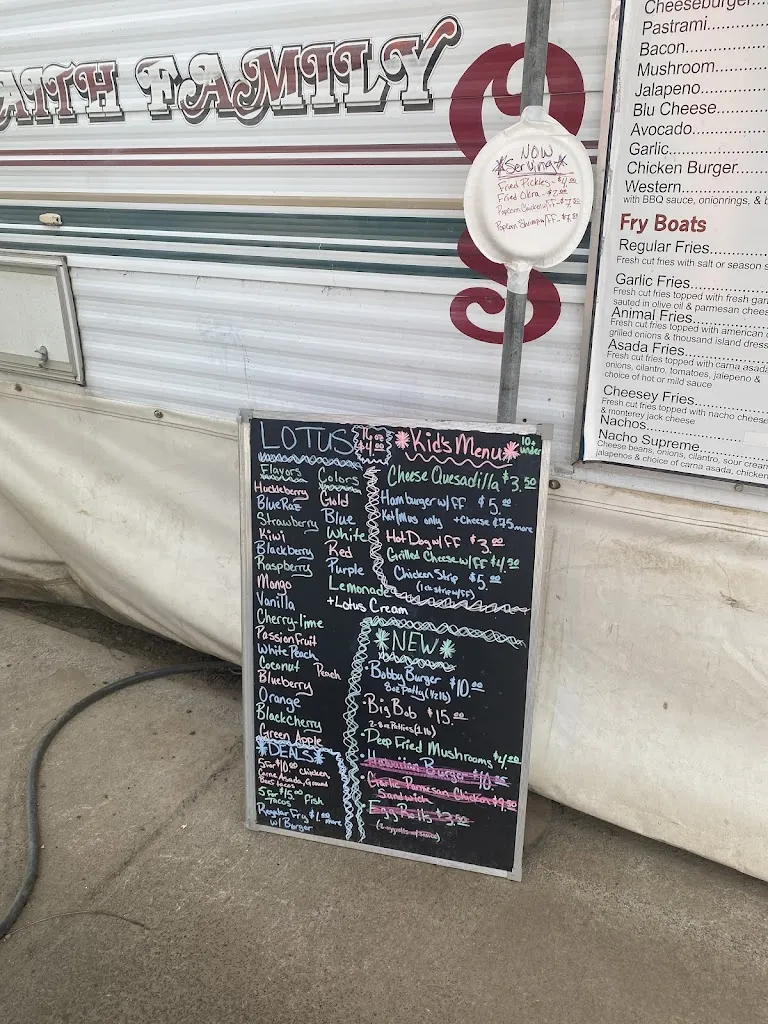 AITH FAMILY
NOW
*Serving*
Fried Pickles - $4.00
Fried Okra -
Popcorn Chicken w/FF -
Popcorn Shrimp w/FF -
Cheeseburger
Pastrami
Bacon
Mushroom
Jalapeno
Blu Cheese
Avocado
Garlic
Chicken Burger
Western
with BBQ sauce, onionrings, &
Fry Boats
Regular Fries
Fresh cut fries with salt or season
Garlic Fries
Fresh cut fries topped with fresh
sauted in olive oil & parmesan
Animal Fries
Fresh cut fries topped with american
grilled onions & thousand island
Asada Fries
Fresh cut fries topped with carna asada
onions, cilantro, tomatoes, jalepeno &
choice of hot or mild sauce
Cheesey Fries
Fresh cut fries topped with nacho cheese
& monterey jack cheese
Nachos
Nacho Supreme
Cheese beans, onions, cilantro, sour cream
jalapenos & choice of carna asada, chicken
LOTUS 16 oz $4.00
Flavors
Huckleberry
BlueRaz
Strawberry
Kiwi
Blackberry
Raspberry
Mango
Vanilla
Cherry-lime
Passion Fruit
White Peach
Coconut Peach
Blueberry
Orange
Black Cherry
Green Apple
Colors
Gold
Blue
White
Red
Purple
Lemonade
+Lotus Cream
*DEALS*
5 for $10.00 Chicken,
Carne Asada, Ground
Beef tacos
5 for $15.00 Fish
Tacos
Regular Fry $1.00 more
w/ Burger
*Kid's Menu* 10+ under
Cheese Quesadilla $3.50
Hamburger w/FF $5.00
Ket/Mus only +Cheese ¢75 more
Hot Dog w/FF $3.00
Grilled Cheese w/FF $4.50
Chicken Strip $5.00
(1 chx strip w/FF)
*NEW*
• Bobby Burger $10.00
8oz Patty (1/2 lb)
• Big Bob $15.00
2-8oz Patties (1 lb)
• Deep Fried Mushrooms $4.00
• Hawaiian Burger $10.00
• Garlic Parmesan Chicken $9.50
Sandwich
• Egg Rolls $3.50